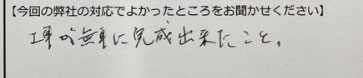 【今回の弊社の対応でよかったところをお聞かせください】
工事が無事に完成出来たこと。